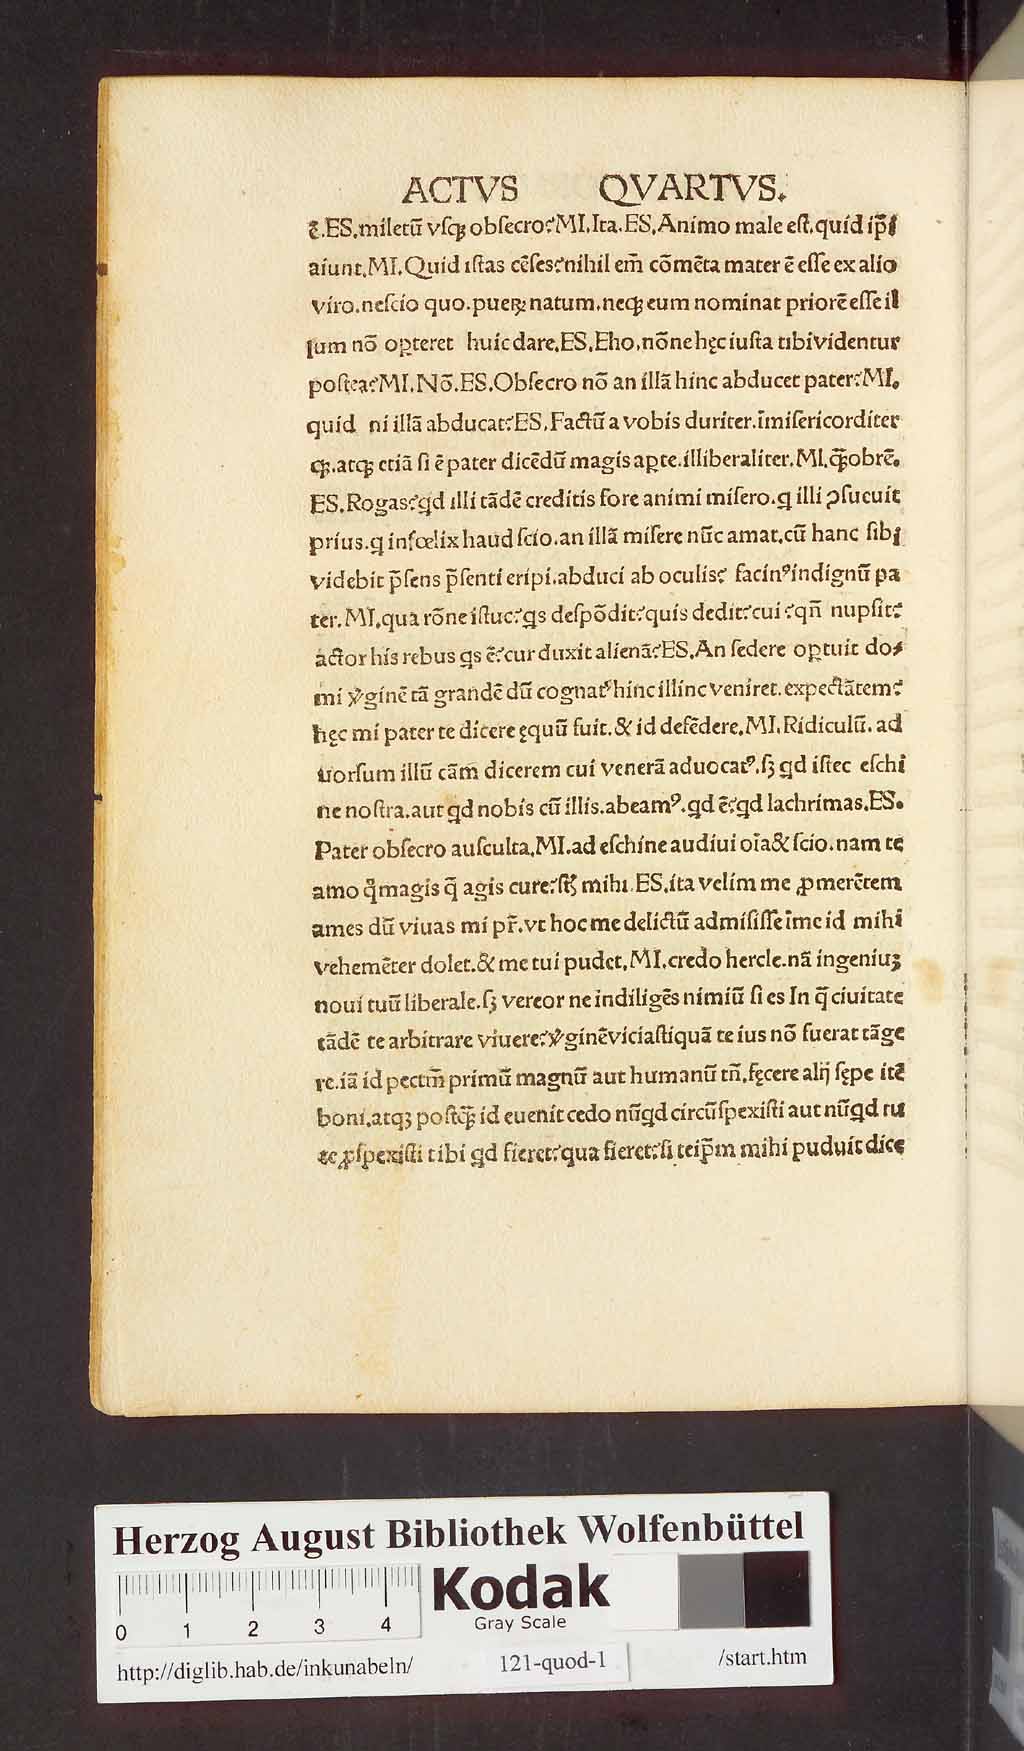 ACTVS QVARTVS.
ē.ES.miletū vſqꝫ obſecro?MI.Ita.ES.Animo male eſt.quid ip̄i
aiunt.MI.Quid iſtas cēſes?nihil em̄ cōmēta mater ē eſſe ex alio
viro.neſcio quo.pueꝝ natum.neqꝫ eum nominat priorē eſſe il
lum nō opteret huic dare.ES.Eho.nōne hęc iuſta tibi videntur
poſtea?MI.Nō.ES.Obſecro nō an illā hinc abducet pater?MI.
quid ni illā abducat?ES.Factū a vobis duriter.īmiſericorditer
qꝫ.atqꝫ etiā ſi ē pater dicēdū magis aꝑte.illiberaliter.MI.ꝗ̄obrē.
ES.Rogas?ꝗd illi tādē creditis fore animi miſero.ꝗ illi ꝯſucuit
prius.ꝗ infœlix haud ſcio.an illā miſere nūc amat.cū hanc ſibi
videbit p̄ſens p̄ſenti eripi.abduci ab oculis? facinꝰ indignū pa
ter.MI.qua rōne iſtuc?ꝗs deſpōdit?quis dedit?cui?qn̄ nupſit?
actor his rebus ꝗs ē?cur duxit alienā?ES.An ſedere optuit do⸗
mi ꝟginē tā grandē dū cognatꝰ hinc illinc veniret.expectātem?
hęc mi pater te dicere ęquū fuit.& id defēdere.MI.Ridiculū. ad
uorſum illū cām dicerem cui venerā aduocatꝰ.ſꝫ ꝗd iſtec eſchi
ne noſtra.aut ꝗd nobis cū illis.abeamꝰ.ꝗd ē?ꝗd lachrimas.ES.
Pater obſecro auſculta.MI.ad eſchine audiui oīa& ſcio.nam te
amo q̄magis q̄ agis cure?ſtꝫ mihi.ES.ita velim me ꝓmerētem
ames dū viuas mi pr̄.vt hoc me delictū admiſiſſe īme id mihi
vehemēter dolet.& me tui pudet.MI.credo hercle.nā ingeniuꝫ
noui tuū liberale.ſꝫ vereor ne indiligēs nimiū ſi es In q̄ ciuitate
tādē te arbitrare viuere?ꝟginē viciaſti quā te ius nō fuerat tāge
re.iā id pectm̄ primū magnū aut humanū tn̄.fęcere alij ſępe itē
boni.atqꝫ poſtꝗ̄ id euenit cedo nūꝗd circūſpexiſti aut nūꝗd tu
te ꝓſpexiſti tibi ꝗd fieret?qua fieret?ſi teip̄m mihi puduit dice
Herzog August Bibliothek Wolfenbüttel
0 1 2 3 4
Kodak
Gray Scale
http://diglib.hab.de/inkunabeln/ 121-quod-1 /start.htm